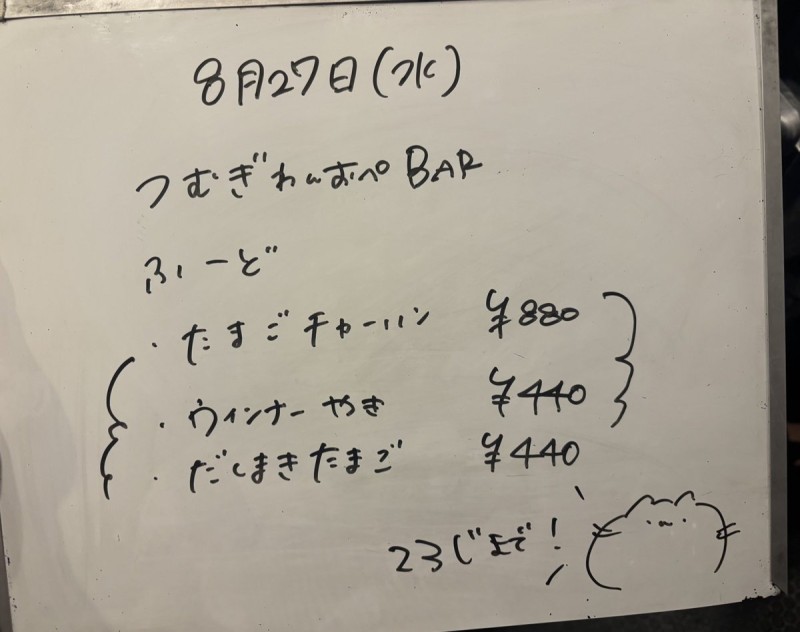 8月27日(水)
つむぎわんおぺBAR
ふーど
・たまごチャーハン ¥880
・ウィンナーやき ¥440
・だしまきたまご ¥440
23じまで!